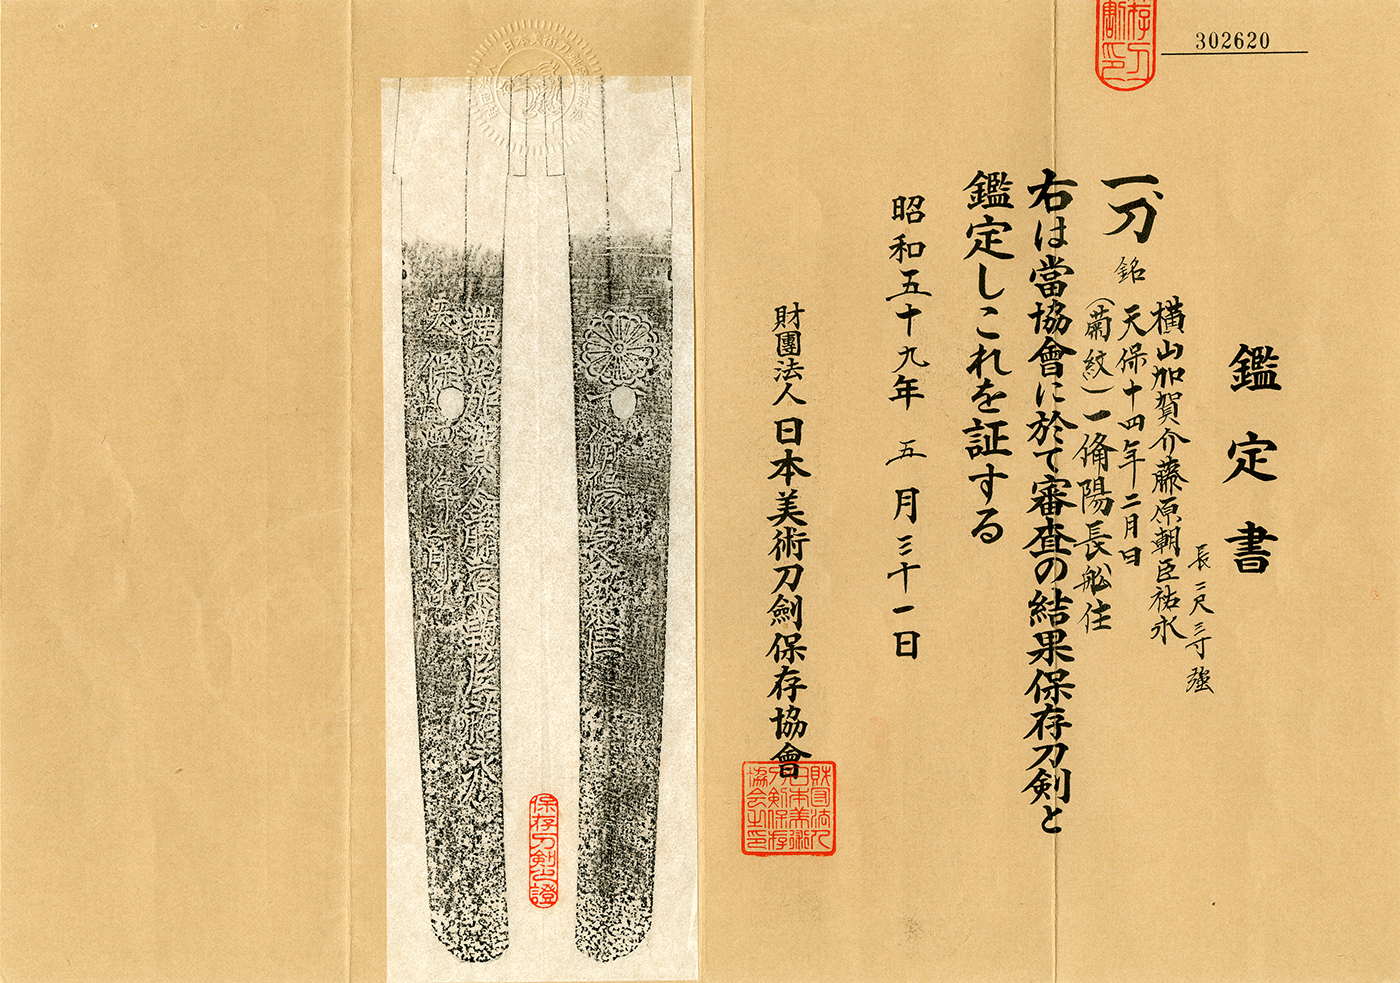 302620
鑑定書
長二尺三寸強
一刀 銘 横山加賀介藤原朝臣祐永
天保十四年二月日
(菊紋)一備陽長船住
右は當協會に於て審査の結果保存刀剣と
鑑定しこれを証する
昭和五十九年 五月三十一日
財團法人 日本美術刀劍保存協會
財団法人
日本美術
刀剣保存
協会之印
保存刀剣之證
横山加賀介藤原朝臣祐永